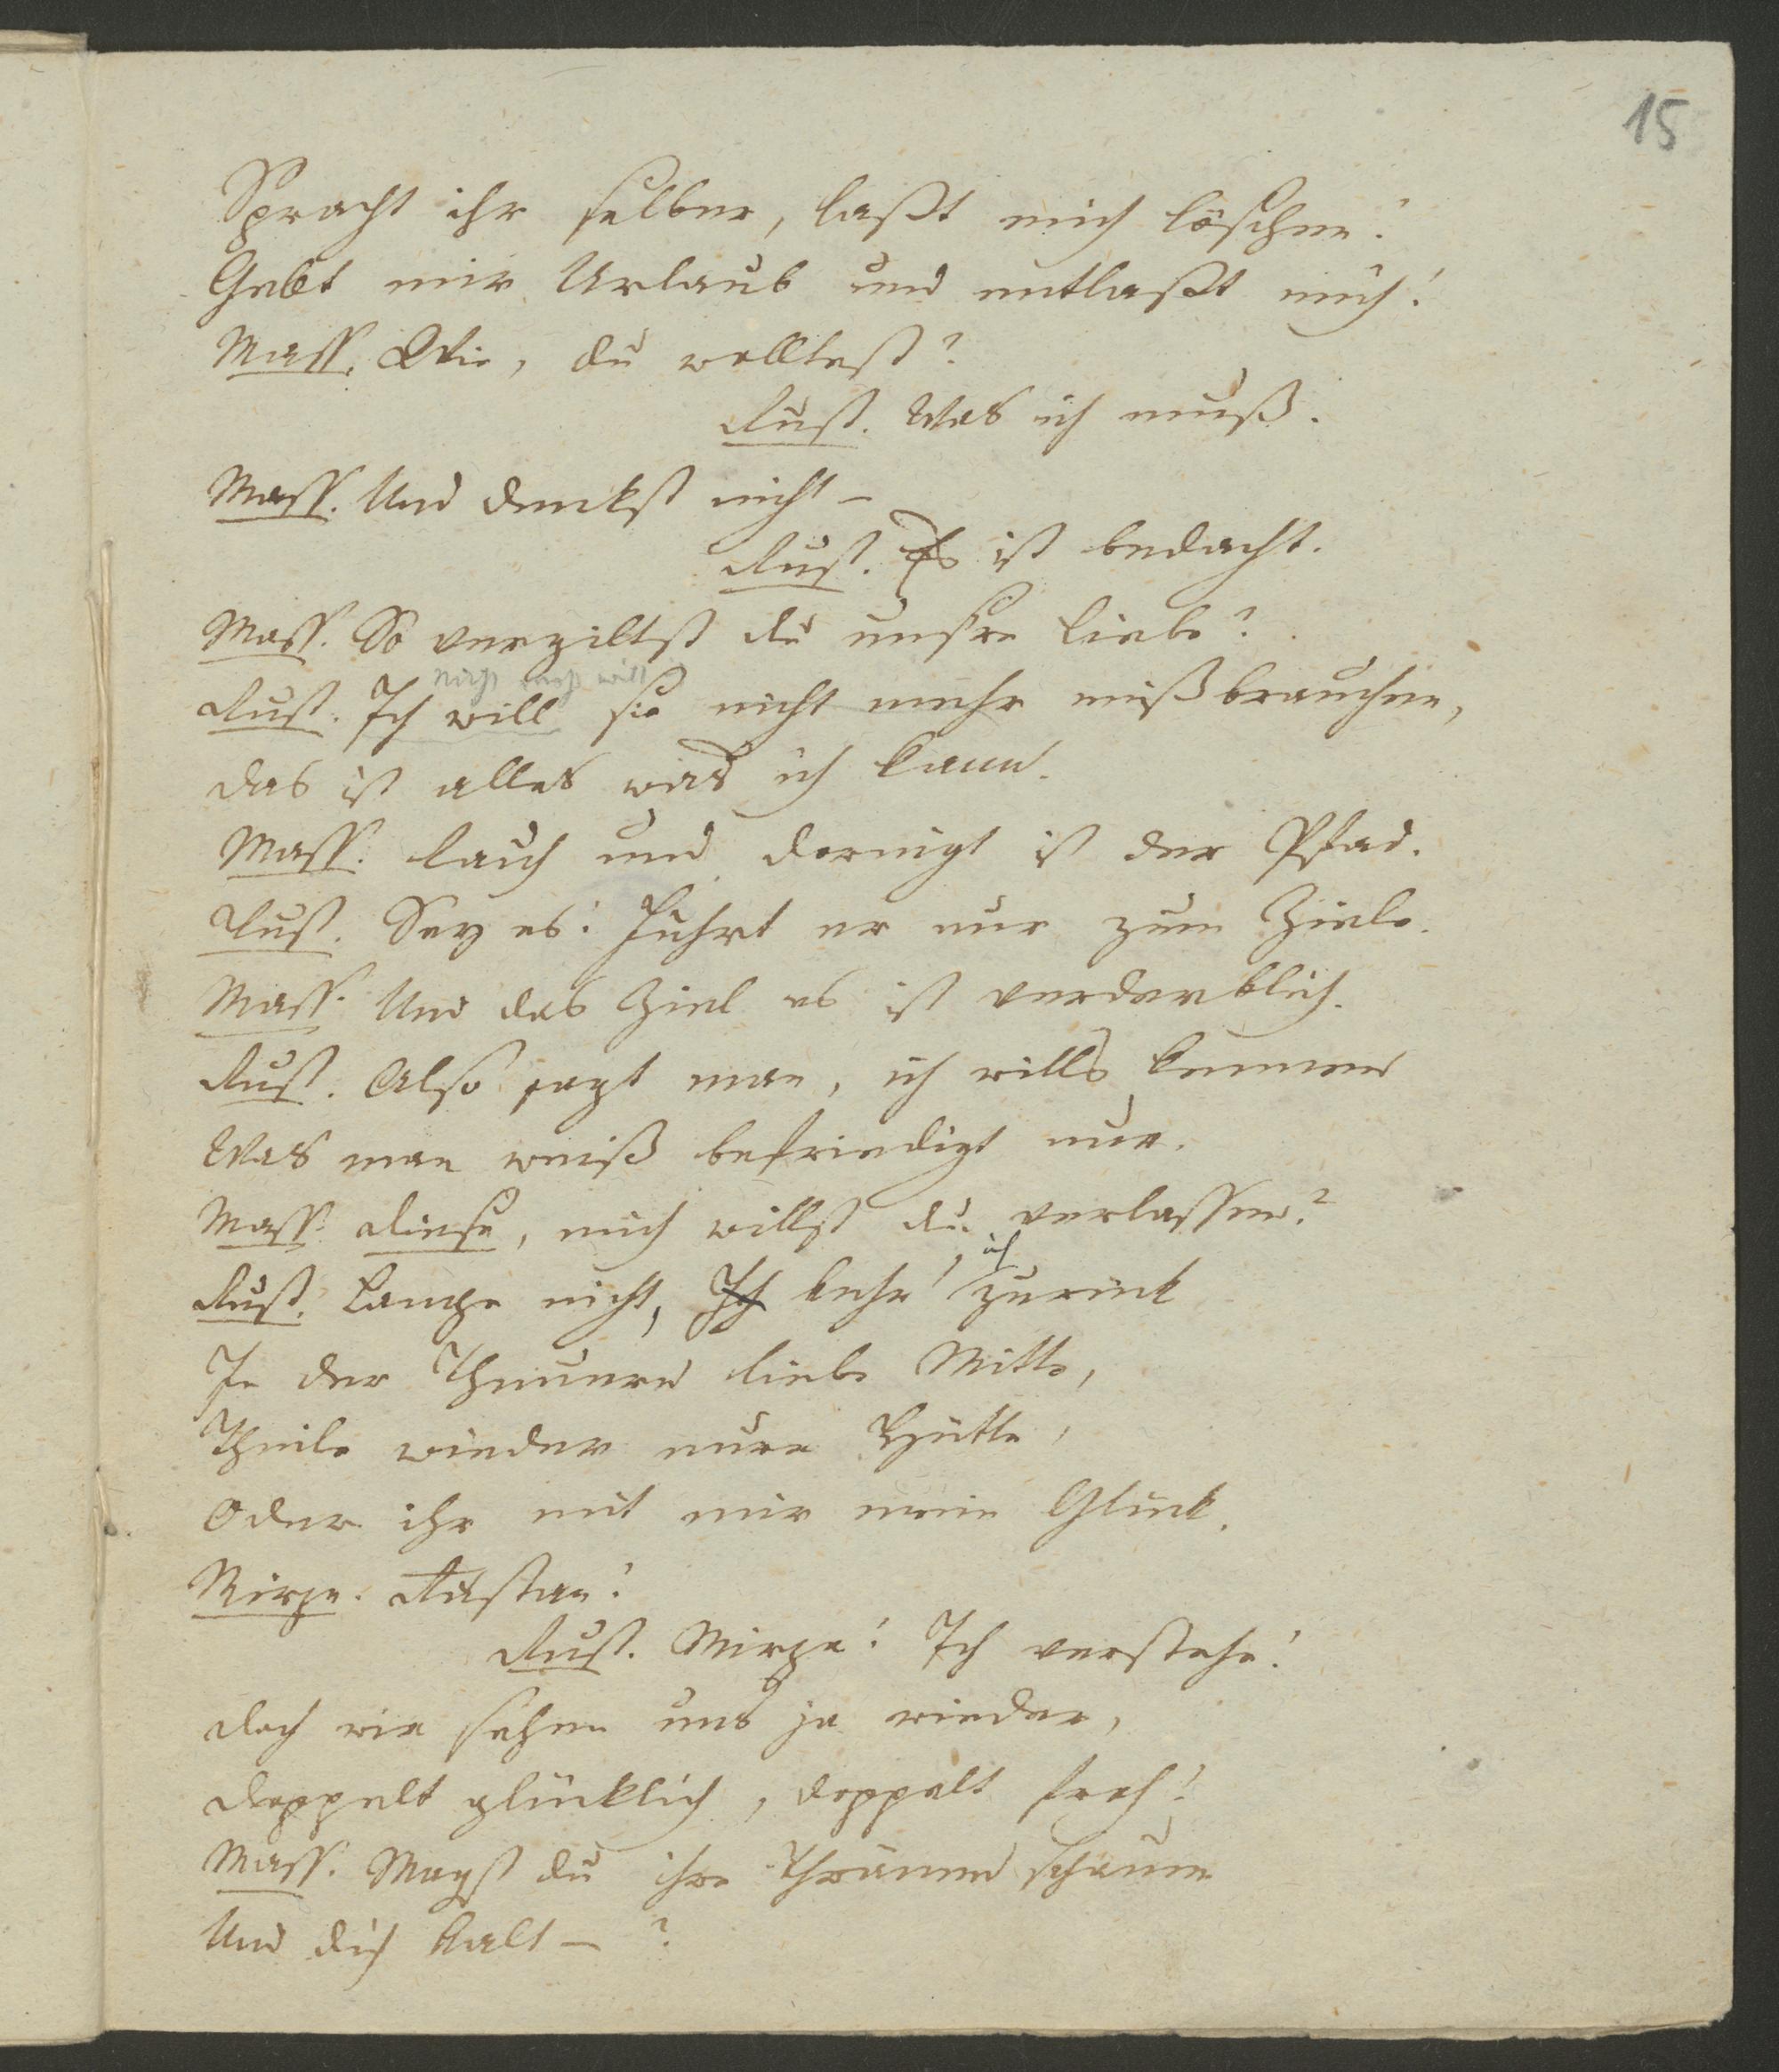 15
Spracht ihr selber, laßt mich löschen!
Gebt mir Urlaub und entlaßt mich!
Mass. Wie, du wolltest?
Rust. Was ich muß.
Mass. Und denkst nicht –
Rust. Es ist bedacht.
Mass. So vergiltst du unsre Liebe?
nicht will
Rust. Ich will sie nicht mehr mißbrauchen,
das ist alles was ich kann.
Mass. Rauh und dornigt ist der Pfad.
Rust. Sey es! Führt er nur zum Ziele.
Mass. Und das Ziel es ist verderblich.
Rust. Also sagt man, ich wills kennen
Was man weiß befriedigt nur.
Mass. Diese, mich willst du verlassen?
ich
Rust. Lange nicht, Ich kehr' zurück
In der Theuern liebe Mitte,
Theile wieder eure Hütte,
Oder ihr mit mir mein Glück.
Mirza. Rustan!
Rust. Mirza! Ich verstehe!
Doch wir sehen uns ja wieder,
Doppelt glücklich, doppelt froh!
Mass. Magst du ihre Thränen schauen
Und dich kalt – ?